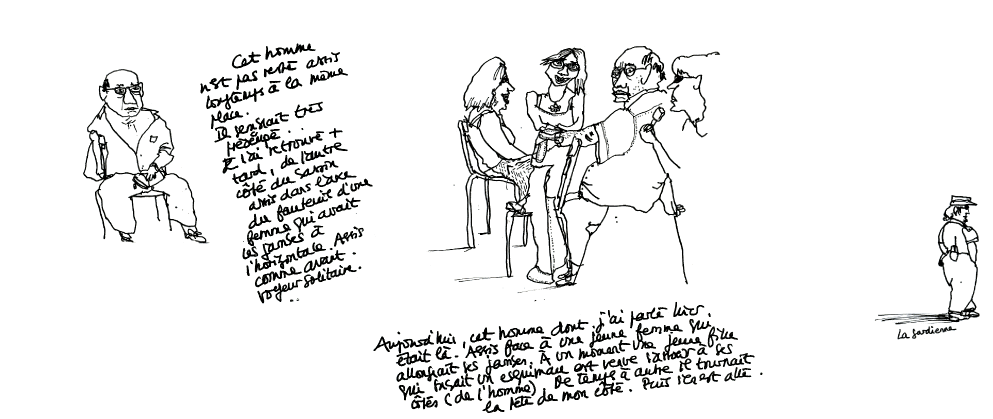 Cet homme
n'est pas resté assis
longtemps à la même
place.
Il semblait très
Je l'ai retrouvé +
tard, de l'autre
côté du bassin
assis dans l'axe
du fauteuil d'une
femme qui avait
les jambes à
l'horizontale. Assis
comme avant.
Voyeur solitaire.
Aujourd'hui, cet homme dont j'ai parlé hier,
était là. Assis face à une jeune femme qui
allongeait ses jambes. À un moment une jeune fille
qui suçait un esquimau est venue s'asseoir à ses
côtés (de l'homme). De temps à autre il tournait
la tête de mon côté. Puis il est allé.
La gardienne